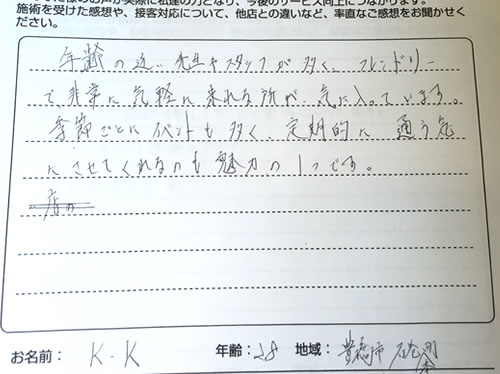 施術を受けた感想や、接客対応について、他店との違いなど、率直なご感想をお聞かせく
ださい。
年齢の近い先生やスタッフが多く、フレンドリー
で非常に気軽に来れる所が、気に入っています。
季節ごとにイベントも多く、定期的に通う気
にさせてくれるのも魅力の1つです。
お名前： K.K 年齢：28 地域：豊橋市